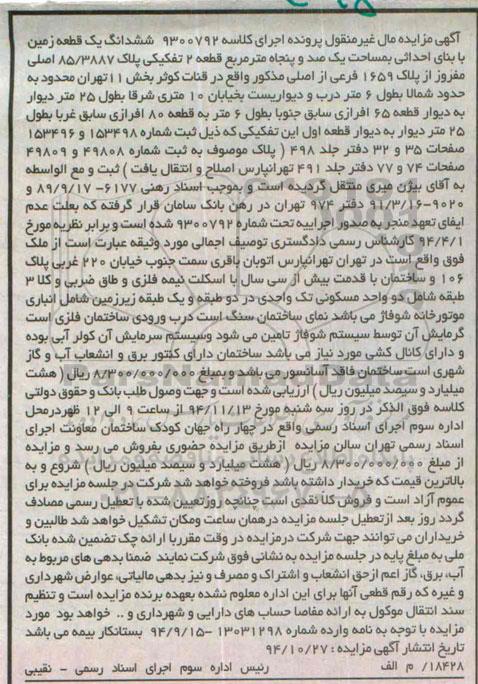 آگهی مزایده مال غیرمنقول پرونده اجرای کلاسه ۹۳۰۰۷۹۲ ششدانگ یک قطعه زمین
با بنای احداثی بمساحت یک صد و پنجاه مترمربع قطعه ۲ تفکیکی پلاک ۸۵/۳۸۸۷ اصلی
مفروز از پلاک ۱۶۵۹ فرعی از اصلی مذکور واقع در قنات کوثر بخش ۱۱ تهران محدود به
حدود شمالا بطول ۶ متر درب و دیواریست بخیابان ۱۰ متری شرقا بطول ۲۵ متر دیوار
به دیوار قطعه ۶۵ افرازی سابق جنوبا بطول ۶ متر به قطعه ۸۰ افرازی سابق غربا بطول
۲۵ متر دیوار به دیوار قطعه اول این تفکیکی که ذیل ثبت شماره ۱۵۳۴۹۸ و ۱۵۳۴۹۶
صفحات ۳۵ و ۳۲ دفتر جلد ۴۹۸ ( پلاک موصوف به ثبت شماره ۴۹۸۰۸ و ۴۹۸۰۹
صفحات ۷۴ و ۷۷ دفتر جلد ۴۹۱ تهرانپارس اصلاح و انتقال یافت ) ثبت و مع الواسطه
به آقای بیژن میری منتقل گردیده است و بموجب اسناد رهنی ۶۱۷۷- ۸۹/۹/۱۷ و
۹۰۲۰-۹۱/۳/۱۶ دفتر ۹۷۴ تهران در رهن بانک سامان قرار گرفته که بعلت عدم
ایفای تعهد منجر به صدور اجراییه تحت شماره ۹۳۰۰۷۹۲ شده است و برابر نظریه مورخ
۹۴/۴/۱ کارشناس رسمی دادگستری توصیف اجمالی مورد وثیقه عبارت است از ملک
فوق واقع است در تهران تهرانپارس اتوبان باقری سمت جنوب خیابان ۲۲۰ غربی پلاک
۱۰۶ و ساختمان با قدمت بیش از سی سال با اسکلت نیمه فلزی و طاق ضربی و کلا ۳
طبقه شامل دو واحد مسکونی تک واحدی در دو طبقه و یک طبقه زیرزمین شامل انباری
موتورخانه شوفاژ می باشد نمای ساختمان سنگ است درب ورودی ساختمان فلزی است
گرمایش آن توسط سیستم شوفاژ تامین می شود وسیستم سرمایش آن کولر آبی بوده
و دارای کانال کشی مورد نیاز می باشد ساختمان دارای کنتور برق و انشعاب آب و گاز
شهری است ساختمان فاقد آسانسور می باشد و بمبلغ ۸/۳۰۰/۰۰۰/۰۰۰ ریال ( هشت
میلیارد و سیصد میلیون ریال ) ارزیابی شده است و جهت وصول طلب بانک و حقوق دولتی
کلاسه فوق الذکر در روز سه شنبه مورخ ۹۴/۱۱/۱۳ از ساعت ۹ الی ۱۲ ظهردرمحل
اداره سوم اجرای اسناد رسمی واقع در چهار راه جهان کودک ساختمان معاونت اجرای
اسناد رسمی تهران سالن مزایده ازطریق مزایده حضوری بفروش می رسد و مزایده
از مبلغ ۸/۳۰۰/۰۰۰/۰۰۰ ریال ( هشت میلیارد و سیصد میلیون ریال ) شروع و به
بالاترین قیمت که خریدار داشته باشد فروخته خواهد شد شرکت در جلسه مزایده برای
عموم آزاد است و فروش کلا نقدی است چنانچه روزتعیین شده با تعطیل رسمی مصادف
گردد روز بعد ازتعطیل جلسه مزایده درهمان ساعت ومکان تشکیل خواهد شد طالبین و
خریداران می توانند جهت شرکت درمزایده در وقت مقرربا ارائه چک تضمین شده بانک
ملی به مبلغ پایه در جلسه مزایده به نشانی فوق شرکت نمایند ضمنا بدهی های مربوط به
آب، برق، گاز اعم ازحق انشعاب و اشتراک و مصرف و نیز بدهی مالیاتی، عوارض شهرداری
و غیره که رقم قطعی آنها برای این اداره معلوم نشده بعهده برنده مزایده است و تنظیم
سند انتقال موکول به ارائه مفاصا حساب های دارایی و شهرداری و .. خواهد بود مورد
مزایده با توجه به نامه وارده شماره ۱۳۰۳۱۲۹۸ -۹۴/۹/۱۵ بستانکار بیمه می باشد
تاریخ انتشار آگهی مزایده : ۹۴/۱۰/۲۷
۱۸۴۲۸/ م الف رئیس اداره سوم اجرای اسناد رسمی - نقیبی